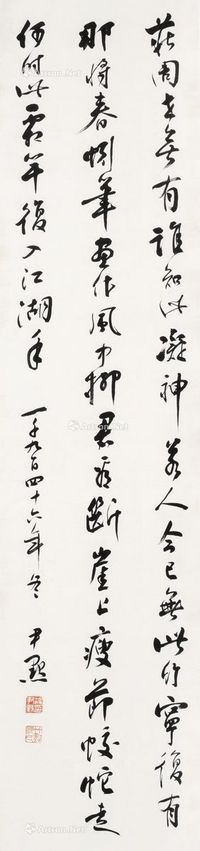 莊周世無有誰知此凝神若人今已無此竹寧復有
那將春蚓筆畫作風中柳君看斷崖上瘦節蛟蛇走
何時此霜竿復入江湖手 一千九百四十六年冬 尹默